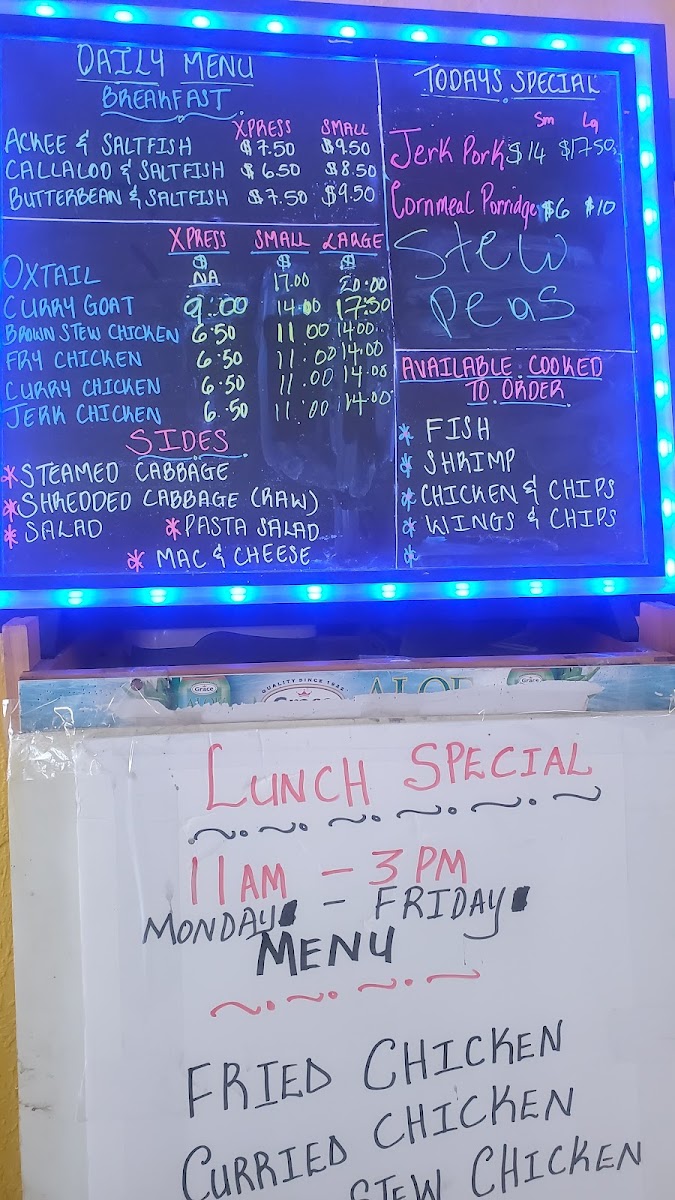 DAILY MENU
BREAKFAST
XPRESS SMALL
ACKEE & SALTFISH $7.50 $9.50
CALLALOO & SALTFISH $6.50 $8.50
BUTTERBEAN & SALTFISH $7.50 $9.50
XPRESS SMALL LARGE
$ $ $
OXTAIL NA 17.00 20.00
CURRY GOAT 9.00 14.00 17.50
BROWN STEW CHICKEN 6.50 11.00 14.00
FRY CHICKEN 6.50 11.00 14.00
CURRY CHICKEN 6.50 11.00 14.00
JERK CHICKEN 6.50 11.00 14.00
SIDES
* STEAMED CABBAGE
* SHREDDED CABBAGE (RAW)
* SALAD * PASTA SALAD
* MAC & CHEESE
TODAYS SPECIAL
Sm Lg
Jerk Pork $14 $17.50
Cornmeal Porridge $6 $10
Stew
peas
AVAILABLE COOKED
TO ORDER
* FISH
* SHRIMP
* CHICKEN & CHIPS
* WINGS & CHIPS
*
Grace QUALITY SINCE 1922 Grace ALOE Grace
LUNCH SPECIAL
11AM - 3PM
MONDAY - FRIDAY
MENU
FRIED CHICKEN
CURRIED CHICKEN
STEW CHICKEN